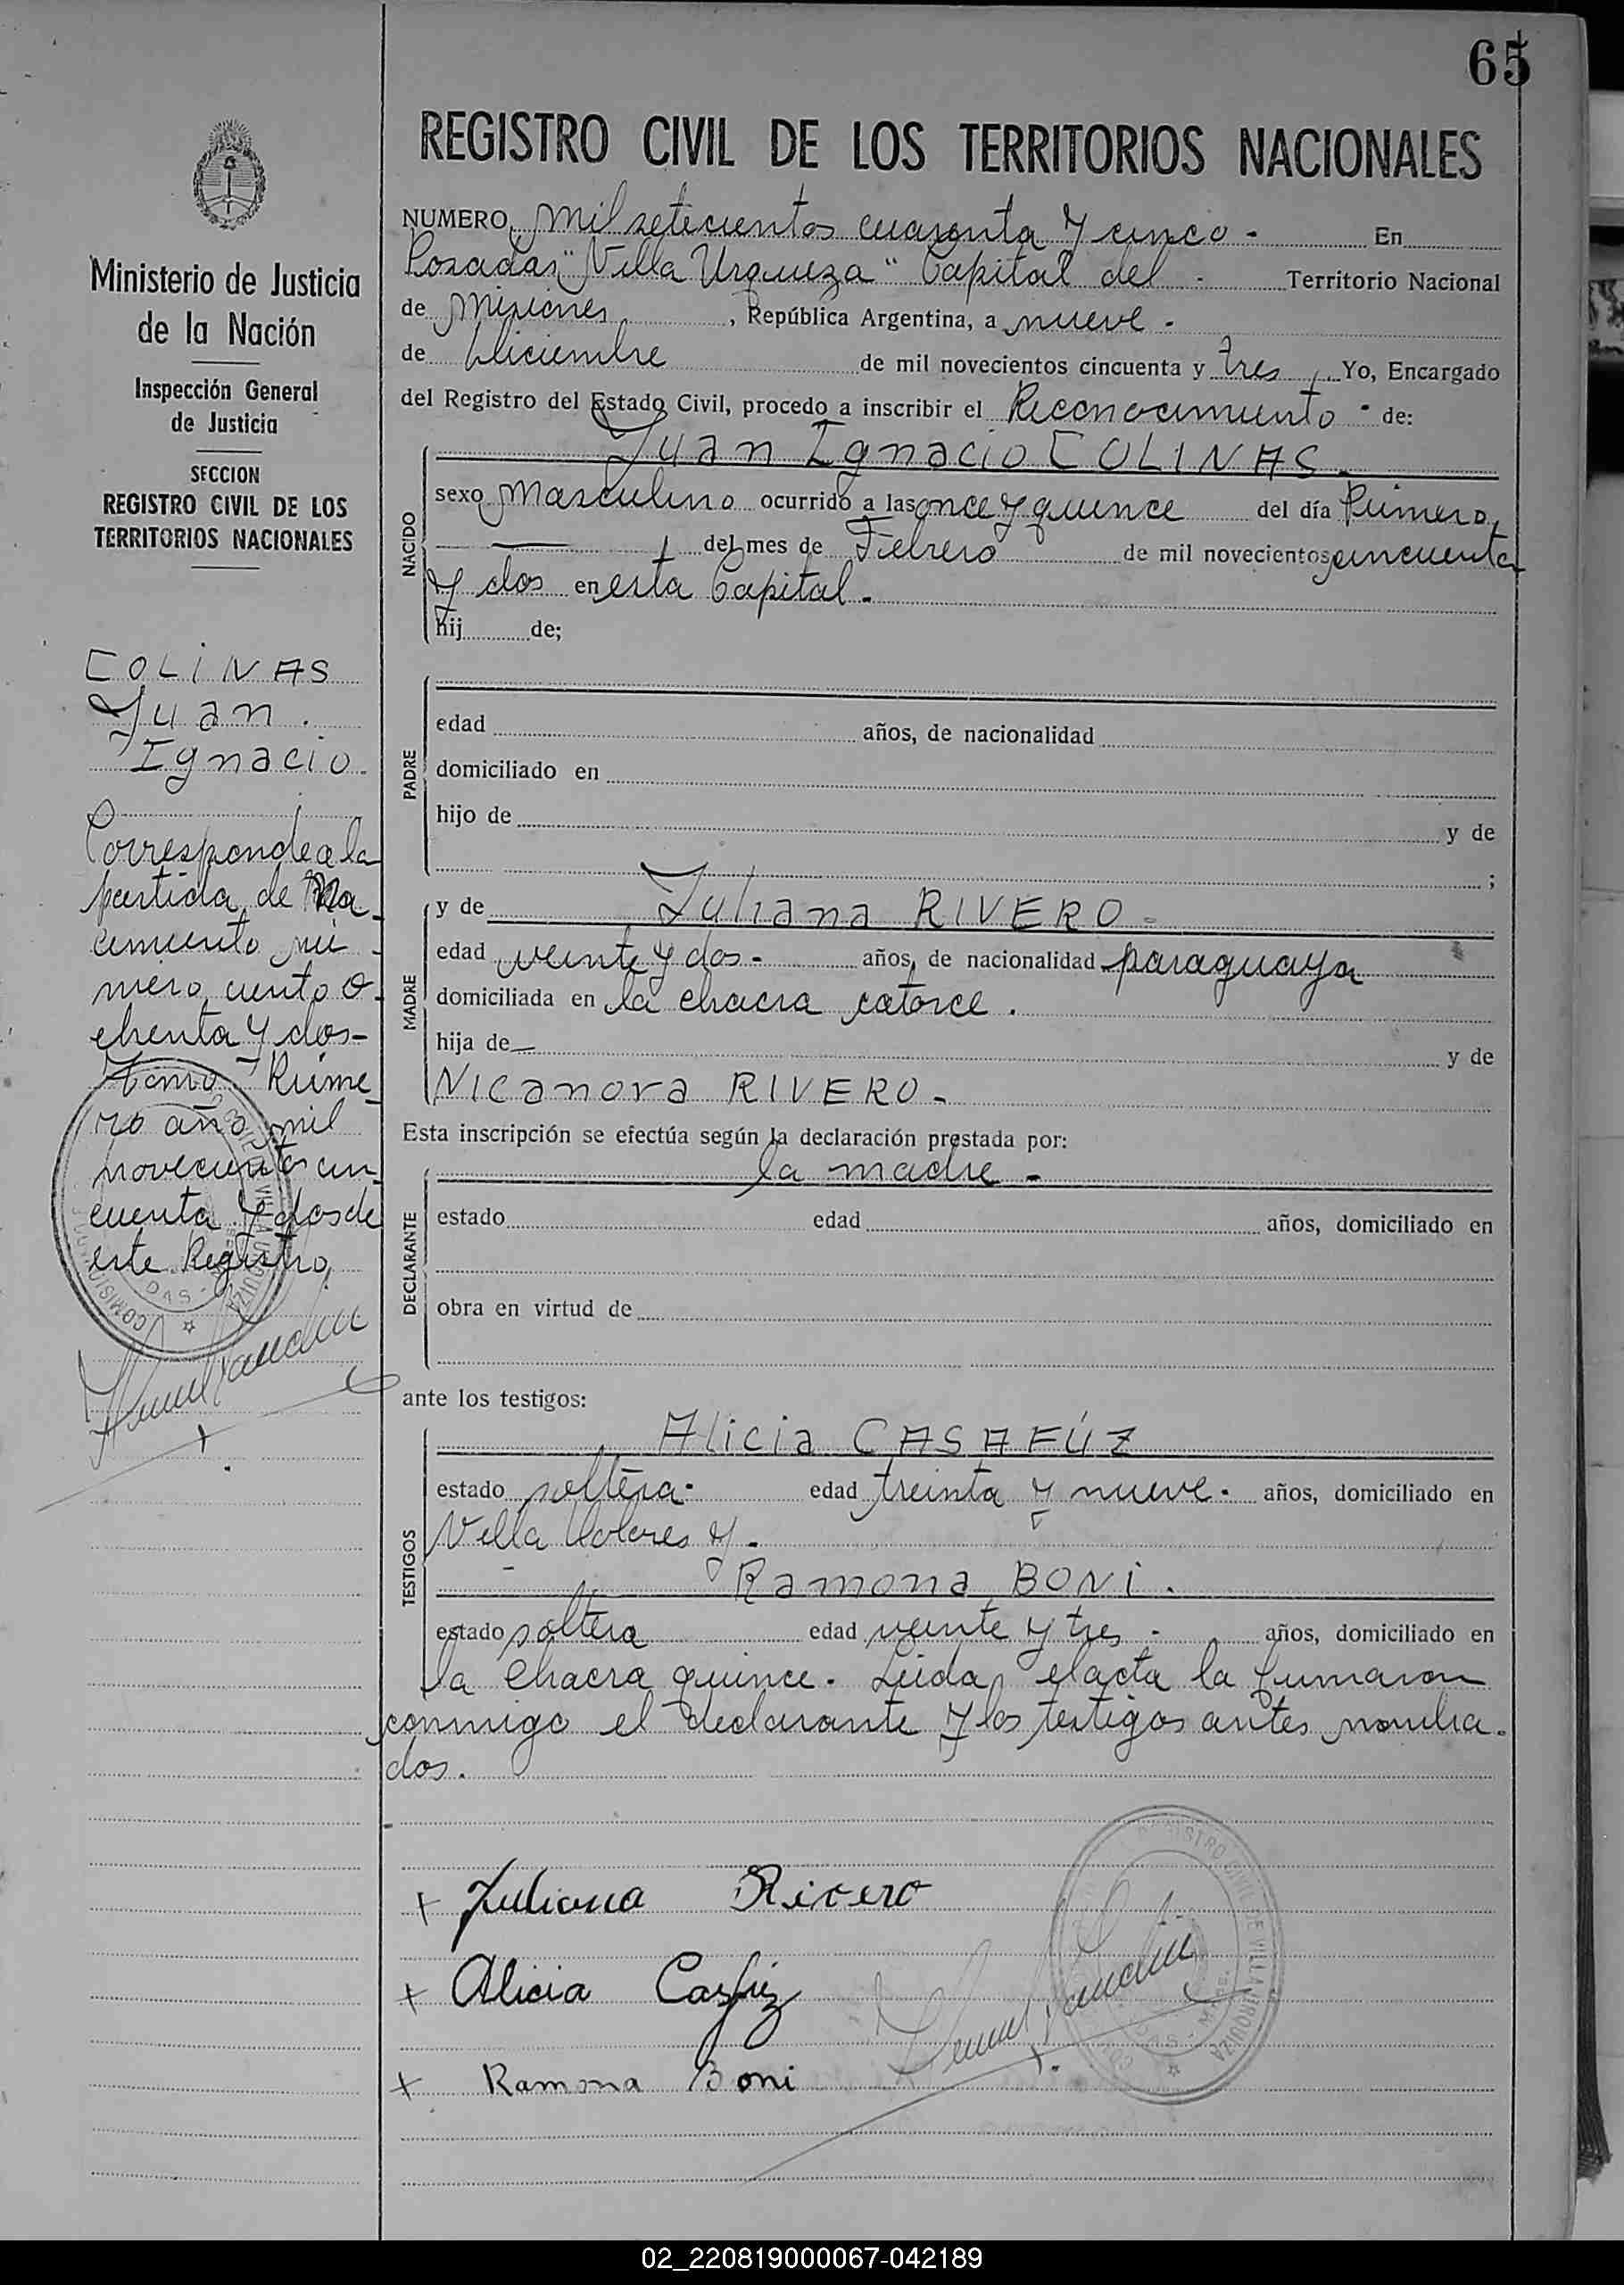 65
REGISTRO CIVIL DE LOS TERRITORIOS NACIONALES
Ministerio de Justicia
de la Nación
Inspección General
de Justicia
SECCION
REGISTRO CIVIL DE LOS
TERRITORIOS NACIONALES
COLINAS
Juan
Ignacio.
Corresponde a la
partida de Na-
cimiento nú-
mero ciento o-
chenta y dos-
tomo Prime-
ro año mil
novecientos cin-
cuenta y dos de
este Registro,
NUMERO mil setecientos cuarenta y cinco - En
Posadas "Villa Urquiza" Capital del - Territorio Nacional
de Misiones, República Argentina, a nueve -
de Diciembre de mil novecientos cincuenta y tres, Yo, Encargado
del Registro del Estado Civil, procedo a inscribir el Reconocimiento - de:
Juan Ignacio COLINAS -
NACIDO
sexo Masculino ocurrido a las once y quince del día Primero,
del mes de Febrero de mil novecientos cincuenta
y dos en esta Capital.-
hij de;
PADRE
edad años, de nacionalidad
domiciliado en
hijo de y de
;
MADRE
y de Juliana RIVERO -
edad veinte y dos - años, de nacionalidad paraguaya
domiciliada en la chacra catorce.
hija de — y de
Nicanora RIVERO -
Esta inscripción se efectúa según la declaración prestada por:
la madre -
DECLARANTE
estado edad años, domiciliado en
obra en virtud de
ante los testigos:
TESTIGOS
Alicia CASAFÚZ
estado soltera - edad treinta y nueve - años, domiciliado en
Villa Dolores y -
Ramona BONi.
estado soltera edad veinte y tres - años, domiciliado en
la chacra quince. Leida el acta la firmaron
conmigo el declarante y los testigos antes nombra-
dos.
+ Juliana Rivero
+ Alicia Casfúz
+ Ramona Boni
REGISTRO CIVIL DE VILLA URQUIZA
02_220819000067-042189